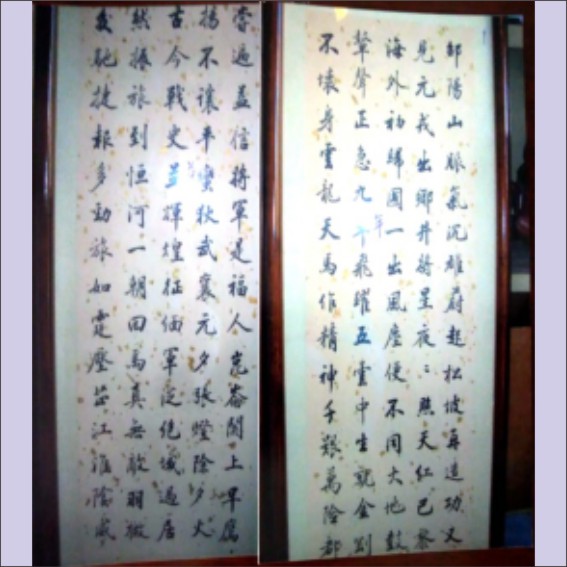 邵陽山脈氣沉雄蔚起松坡再造功又
見元戎出鄉井將星夜〻照天紅巴黎
海外初歸國一出風塵便不同大地鼓
鼙聲正急九年飛躍五雲中生就金剛
不壞身雲龍天馬作精神千艱萬險都
嘗遍益信將軍是福人崑崙關上早鷹
揚不讓平蠻狄武襄元夕張燈除夕火
古今戰史並輝煌征緬軍從絕域過居
然振旅到恒河一朝回馬真無敵羽檄
交馳捷報多勁旅如霆壓芷江淮陰威